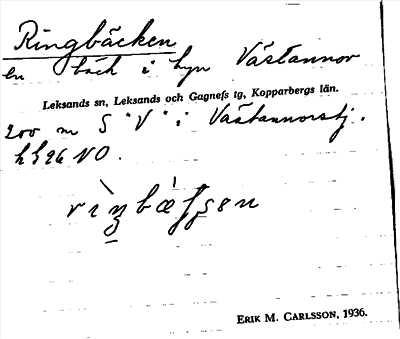 Ringbäcken
en bäck i byn Västannor
Leksands sn, Leksands och Gagnefs tg, Kopparbergs län.
200 m S "V" i Västannorstj.
96 NO.
ERIK M. CARLSSON, 1936.